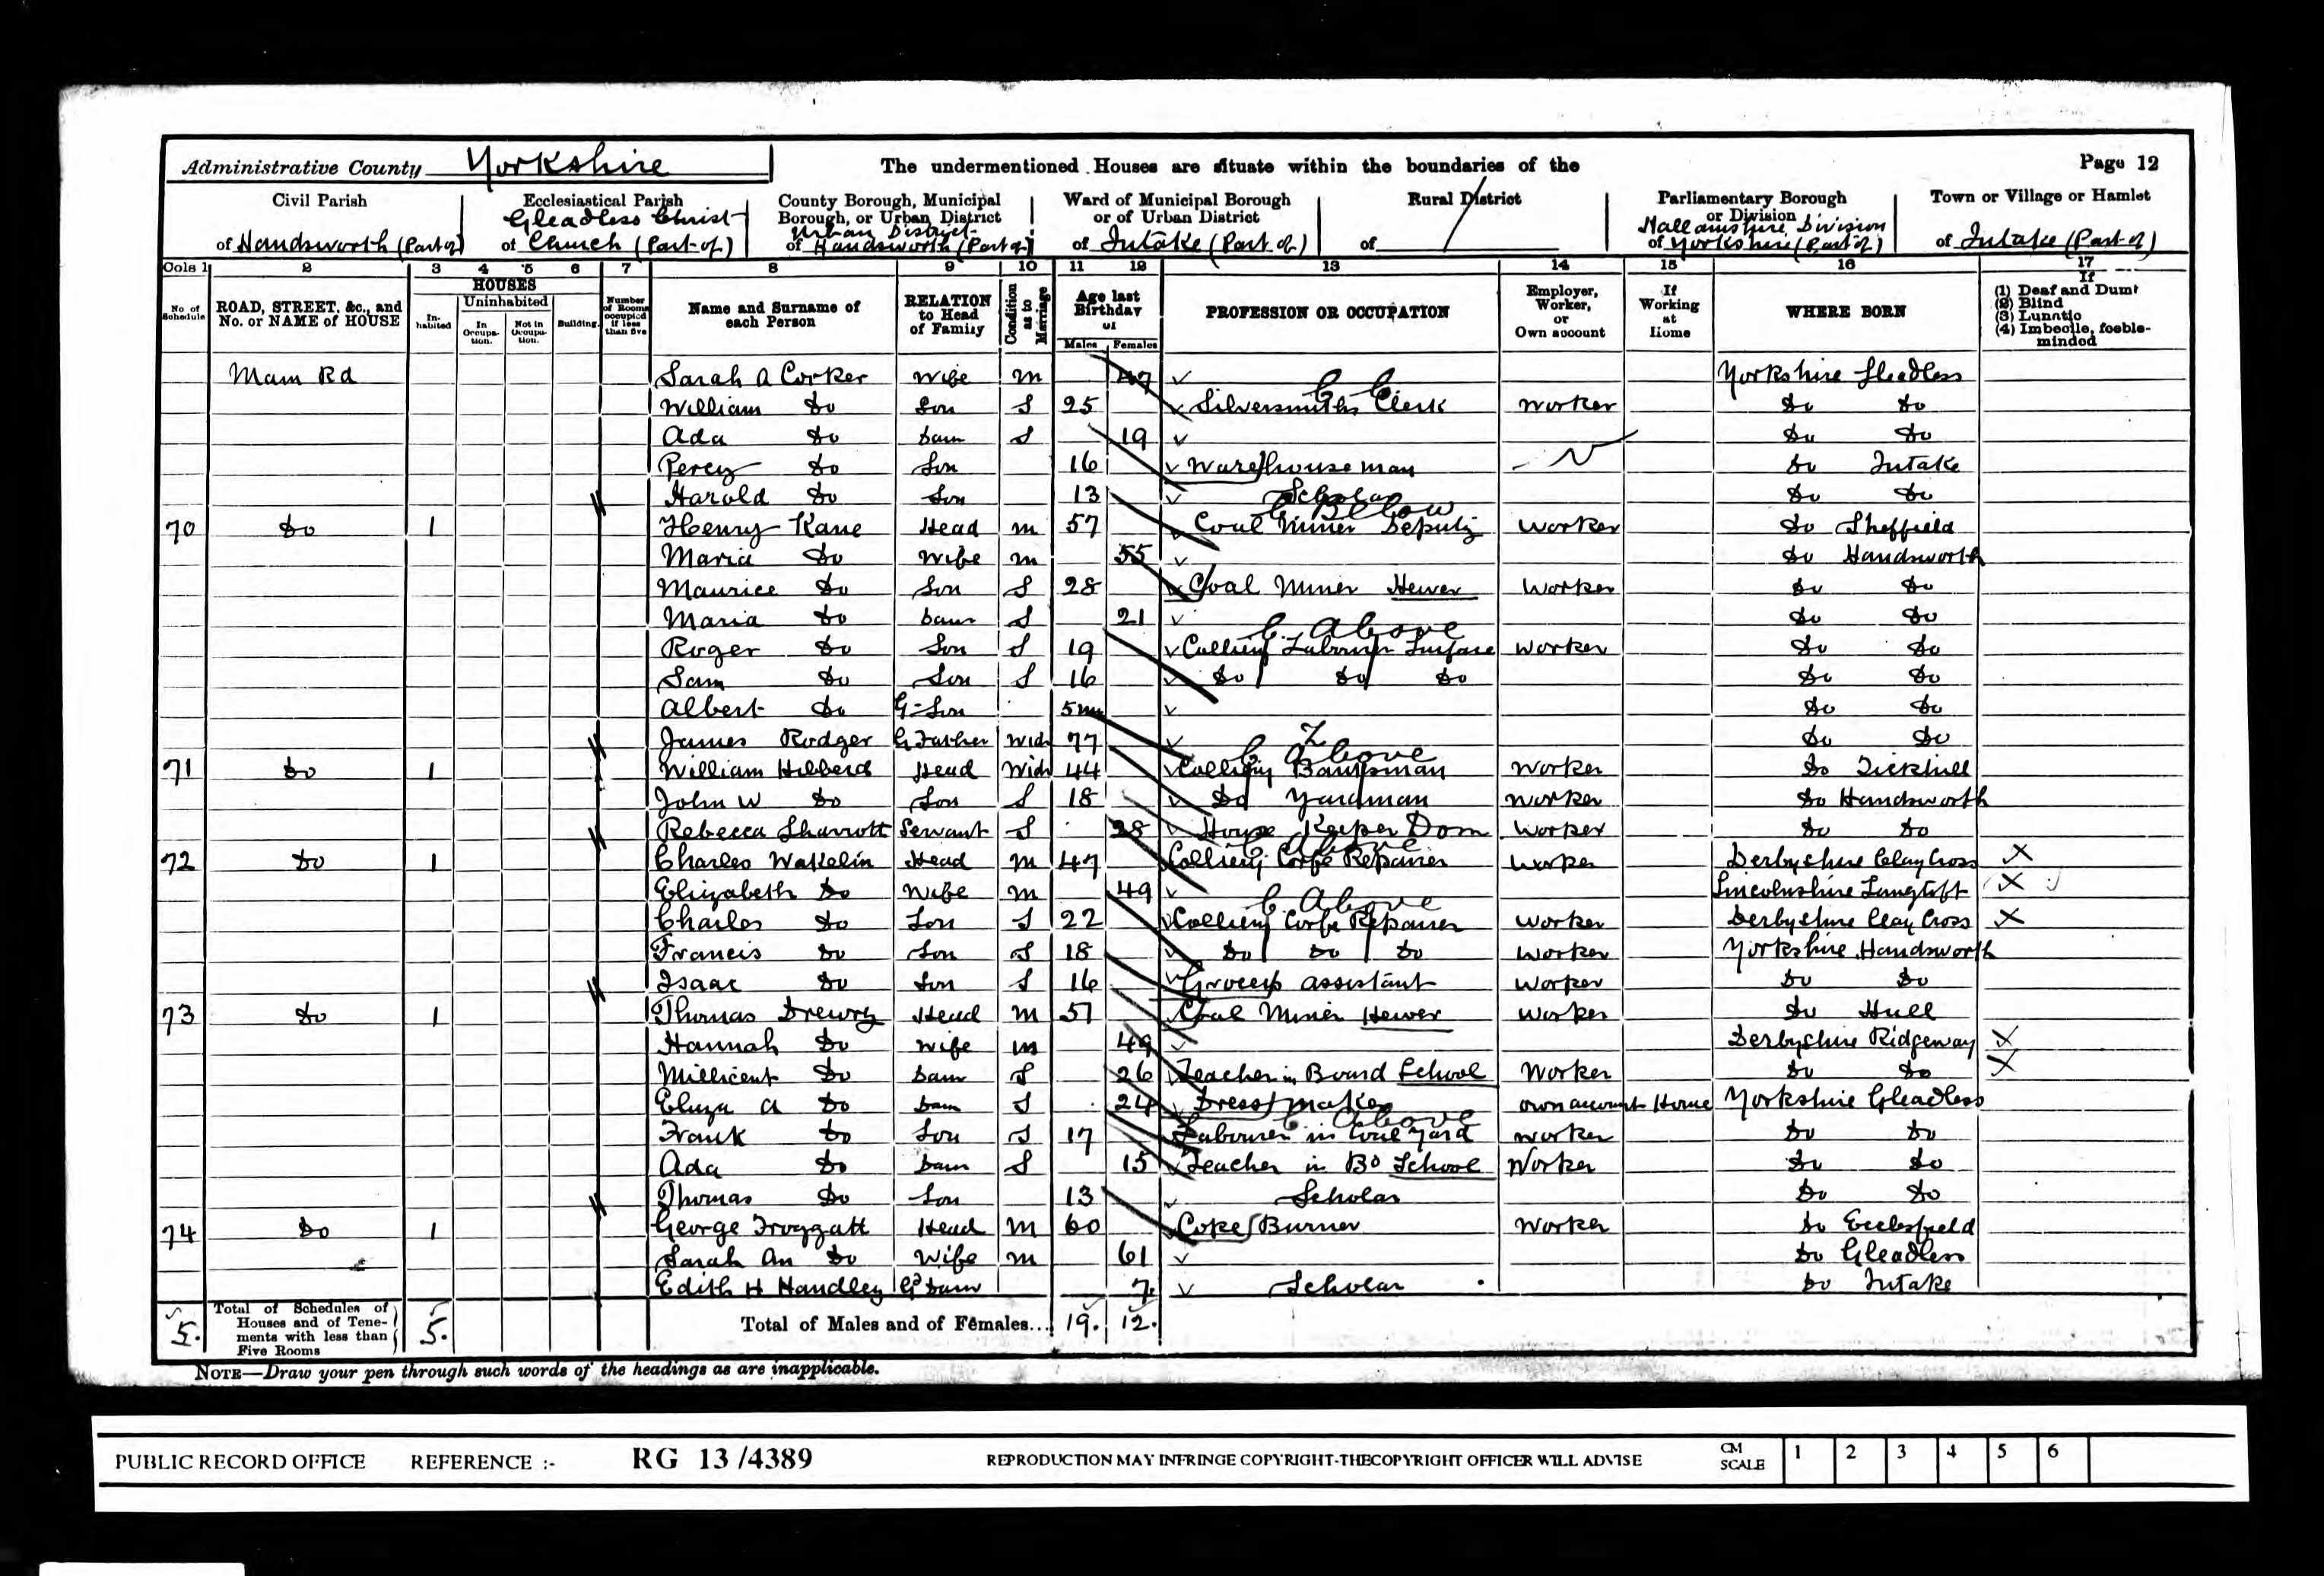 Administrative County Yorkshire The undermentioned Houses are situate within the boundaries of the Page 12
Civil Parish Ecclesiastical Parish County Borough, Municipal Borough, or Urban District Ward of Municipal Borough or of Urban District Rural District Parliamentary Borough or Division Town or Village or Hamlet
of Handsworth (Part of) of Gleadless Christ Church (Part of) Urban District of Handsworth (Part of) of Intake (Part of) of Hallamshire Division of Yorkshire (Part of) of Intake (Part of)
Cols 1 2 3 4 5 6 7 8 9 10 11 12 13 14 15 16 17
No of Schedule ROAD, STREET, &c., and No. or NAME of HOUSE HOUSES Inhabited Uninhabited In Occupation. Not in Occupation. Building. Number of Rooms occupied if less than five Name and Surname of each Person RELATION to Head of Family Condition as to Marriage Age last Birthday of Males Females PROFESSION OR OCCUPATION Employer, Worker, or Own account If Working at Home WHERE BORN If (1) Deaf and Dumb (2) Blind (3) Lunatic (4) Imbecile, feeble-minded
Main Rd Sarah A Corker Wife M 47 Yorkshire Gleadless
William Do Son S 25 Silversmiths Clerk Worker Do Do
Ada Do Daur S 19 Do Do
Percy Do Son 16 Warehouseman Do Intake
Harold Do Son 13 Scholar Do Do
70 Do 1 Henry Kane Head M 57 Coal Miner Deputy Below Worker Do Sheffield
Maria Do Wife M 55 Do Handsworth
Maurice Do Son S 28 Coal Miner Hewer Worker Do Do
Maria Do Daur S 21 Do Do
Roger Do Son S 19 Colliery Labourer Surface C Above Worker Do Do
Sam Do Son S 16 Do Do Do Do Do
Albert Do G-Son 5m Do Do
James Rodger G Father Widr 77 Do Do
71 Do 1 William Hibberd Head Widr 44 Colliery Banksman C Above Worker Do Tickhill
John W Do Son S 18 Do Yardman Worker Do Handsworth
Rebecca Sharrott Servant S 28 House Keeper Dom Worker Do Do
72 Do 1 Charles Wakelin Head M 47 Colliery Corfe Repairer C Above Worker Derbyshire Clay Cross X
Elizabeth Do Wife M 49 Lincolnshire Langtoft X
Charles Do Son S 22 Colliery Corfe Repairer C Above Worker Derbyshire Clay Cross X
Francis Do Son S 18 Do Do Do Worker Yorkshire Handsworth
Isaac Do Son S 16 Grocers assistant Worker Do Do
73 Do 1 Thomas Drewry Head M 51 Coal Miner Hewer Worker Do Hull
Hannah Do Wife M 49 Derbyshire Ridgeway X
Millicent Do Daur S 26 Teacher in Board School Worker Do Do X
Eliza A Do Daur S 24 Dress maker own account Home Yorkshire Gleadless
Frank Do Son S 17 Labourer in Coal Yard C Above Worker Do Do
Ada Do Daur S 15 Teacher in Bd School Worker Do Do
Thomas Do Son 13 Scholar Do Do
74 Do 1 George Froggatt Head M 60 Coke Burner Worker Do Ecclesfield
Sarah An Do Wife M 61 Do Gleadless
Edith H Handley Gd Daur 7 Scholar Do Intake
5. Total of Schedules of Houses and of Tenements with less than Five Rooms 5. Total of Males and of Females... 19. 12.
NOTE—Draw your pen through such words of the headings as are inapplicable.
PUBLIC RECORD OFFICE REFERENCE :- RG 13 /4389 REPRODUCTION MAY INFRINGE COPYRIGHT-THE COPYRIGHT OFFICER WILL ADVISE CM SCALE 1 2 3 4 5 6